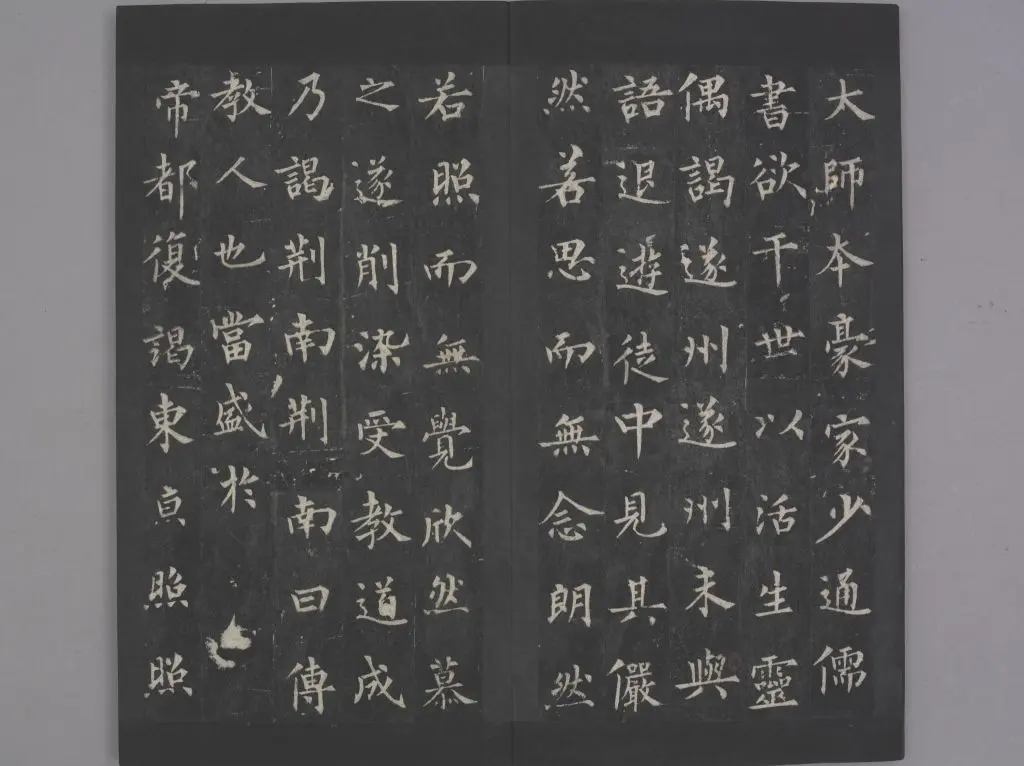 大師本豪家少通儒
書欲干世以活生靈
偶謁遂州遂州未與
語退遊徒中見其儼
然若思而無念朗然
若照而無覺欣然慕
之遂削染受教道成
乃謁荆南荆南曰傳
教人也當盛於
帝都復謁東京照照